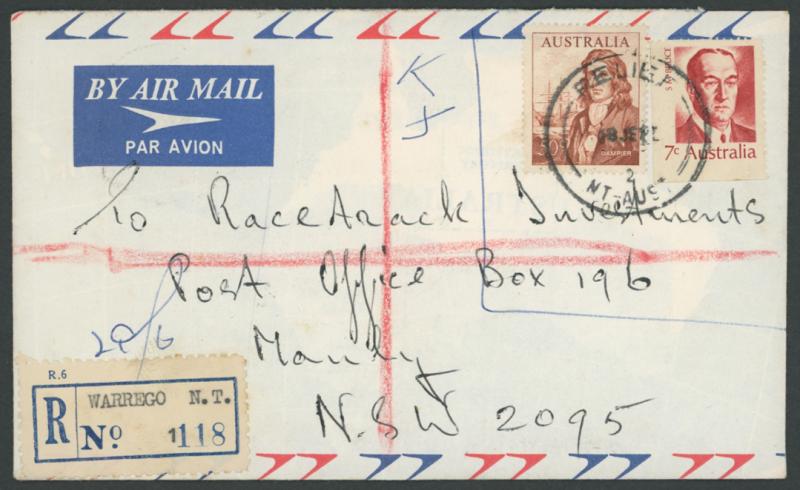 BY AIR MAIL
PAR AVION
AUSTRALIA
50c
DAMPIER
S M BRUCE
7c Australia
RELIEF
2
NT-AUST
K
To RaceTrack Investments
Post Office Box 196
Manly
N.S.W 2095
29/6
R.6
R
WARREGO N.T.
No 1118